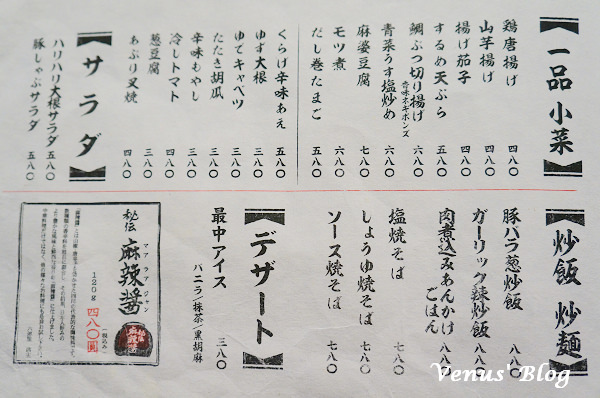 一品 小菜
鶏唐揚げ 四八〇
山芋揚げ 四八〇
揚げ茄子 四八〇
するめ天ぷら 五八〇
鯛ぶつ切り揚げ 六八〇
香味ネギポンズ
青菜うす塩炒め 六八〇
麻婆豆腐 七八〇
モツ煮 六八〇
だし巻たまご 五八〇
くらげ辛味あえ 五八〇
ゆず大根 三八〇
ゆでキャベツ 三八〇
たたき胡瓜 三八〇
辛味もやし 三八〇
冷しトマト 四八〇
葱豆腐 三八〇
あぶり叉焼 四八〇
サラダ
ハリハリ大根サラダ 五八〇
豚しゃぶサラダ 五八〇
炒飯 炒麺
豚バラ葱炒飯 八八〇
ガーリック辣炒飯 八八〇
肉煮込みあんかけ
ごはん 八八〇
塩焼そば 七八〇
しょうゆ焼そば 七八〇
ソース焼そば 七八〇
デザート
最中アイス 三八〇
バニラ/抹茶/黒胡麻
秘伝
麻辣醤
マアラアジャン
120g
四八〇圓
(税込み)
Venus' Blog